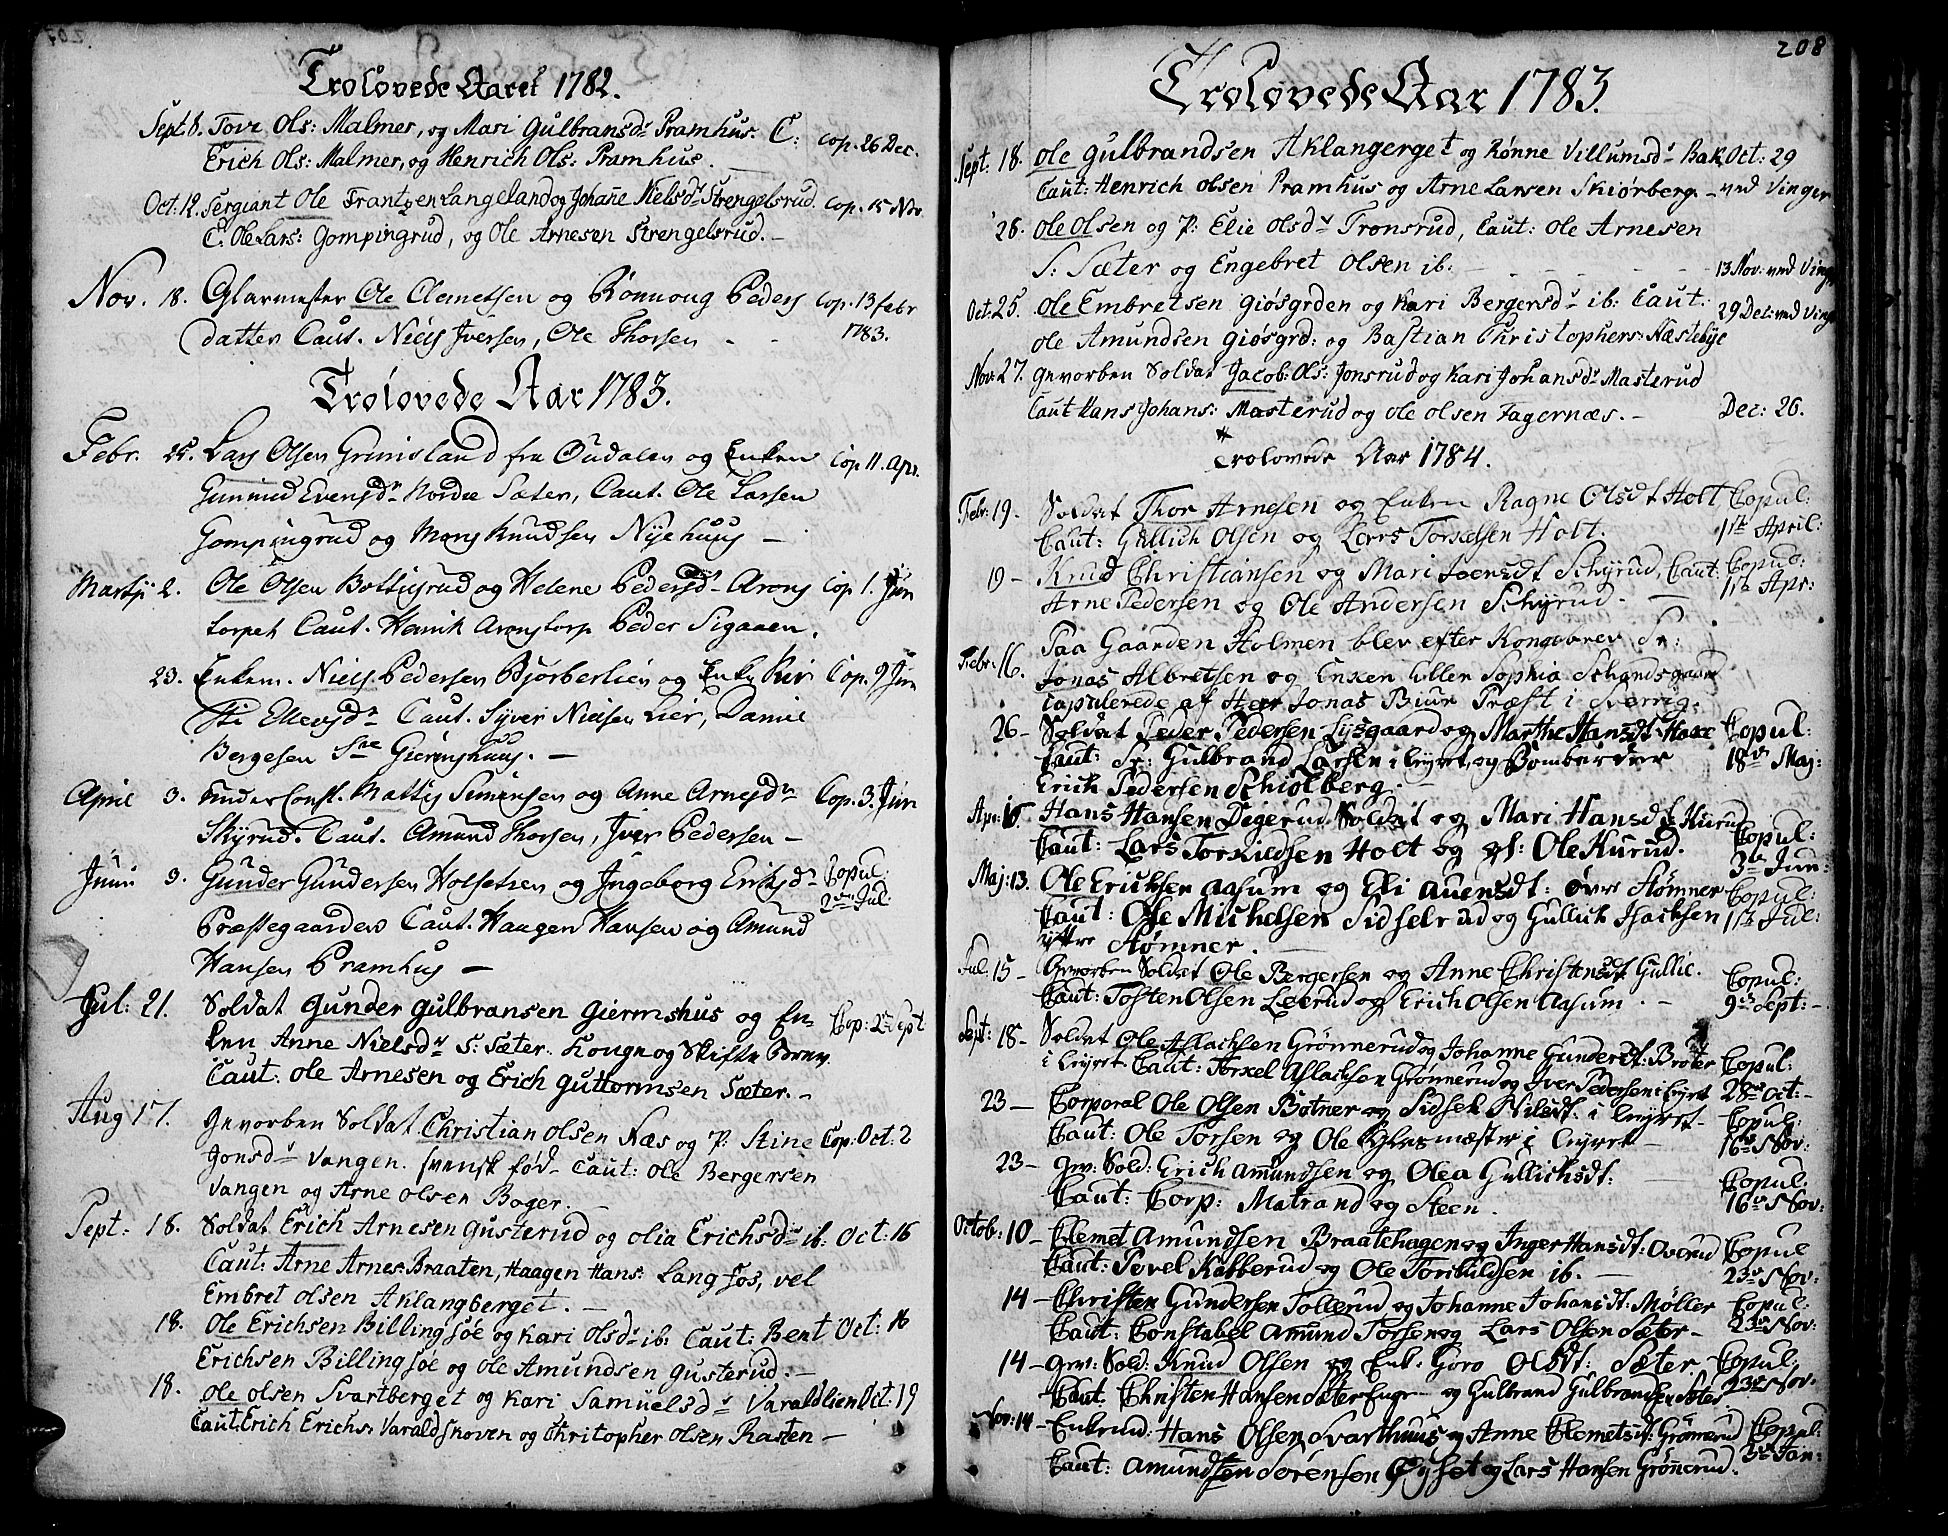 Trolovede Aaret 1782.
Sept 8. Tore Ols: Malmer, og Mari Gulbransdr Pramhus. C: cop. 26 Dec.
Erich Ols: Malmer, og Henrich Ols: Pramhus.
Oct: 12. Sergiant Ole Frantzen Langeland og Johane Nielsdr Strengelsrud. cop. 15 Nov.
C. Ole Lars: Gompingrud, og Ole Arnesen Strengelsrud. -
Nov. 18. Glarmester Ole Clemetsen og Rönnoug Peders cop. 13 febr
datter Caut. Niels Iversen, Ole Thorsen - - 1783.
Trolovede Aar 1783.
Febr. 25. Lars Olsen Grimsland fra Oudalen og Enken Cop 11. Apr.
Gunnild Evensdr Nordre Sæter, Caut. Ole Larsen
Gompingrud og Mons Knudsen Nyehuus -
Martji 2. Ole Olsen Bottilsrud og Helene Pedersdr Arons Cop 1. Jun
torpet Caut. Henrik Aronstorp Peder Sigaaen.
23. Enkem. Niels Pedersen Bjørberlien og Enke Kir Cop. 9 Jun
sti Ellevsdr Caut. Syver Nielsen Lier, Daniel
Bergesen Sre Gieringhuus. -
April 3. Under Const. Mattis Simensen og Anne Arnesdr Cop. 3. Jun
Skyrud. Caut. Amund Thorsen, Iver Pedersen -
Junii 9. Gunder Gundersen Holsetsen og Ingeborg Ericksdr Copul:
2den Jul.
Præstegaarden Caut. Haagen Hansen og Amund
Hansen Pramhus -
Jul: 21. Soldat Gunder Gulbransen Giermshus og En- Cop: 2 Sept:
ken Anne Nielsdr S: Sæter. Konge og Skifte Brev.
Caut: Ole Arnesen og Erich Guttormsen Sæter. -
Aug 17. Gevorben Soldat Christian Olsen Næs og P: Stine Cop: Oct: 2
Jonsdr Vangen. svensk fød - Caut: Ole Bergersen
Vangen og Arne Olsen Boger. -
Sept: 18. Soldat Erich Arnesen Gusterud og Olia Erichsdr ib: Oct: 16
Caut: Arne Arnes Braaten, Haagen Hans: Langfos, vel
Embret Olsen Aklangberget. -
18. Ole Erichsen Billingsøe og Kari Olsdr ib: Caut: Bent Oct: 16
Erichsen Billingsøe og Ole Amundsen Gusterud. -
18. Ole Olsen Svartberget og Kari Samuelsdr Varaldlien Oct: 19
Caut: Erich Erichs: Varaldskoven og Christopher Olsen Rasten -
208
Troløvede Aar 1783.
Sept: 18. Ole Gulbrandsen Aklangerget og Rønne Villumsdr Bak Oct: 29
Caut: Henrich Olsen Pramhus og Arne Larsen Skiörberg - ved Vinger
26. Ole Olsen og P: Elie Olsdr Tronsrud, Caut: Ole Arnesen
S: Sæter og Engebret Olsen ib: - - - - 13 Nov: ved Ving
Oct: 25. Ole Embretsen Giösgrden og Kari Bergersdr ib: Caut: 29 Dec: ved Ving
Ole Amundsen Giösgrd: og Bastian Christophers: Næstebye
Nov: 27. Gevorben Soldat Jacob: Ols: Jonsrud og Kari Johansdr Masterud
Caut Hans Johans: Masterud og Ole Olsen Fagernæs. - Dec: 26.
Trolovede Aar 1784.
Febr: 19 - Soldat Thor Arnesen og Enken Ragne Olsdt Holt Copul:
Caut: Gullich Olsen og Lars Torkelsen Holt. 1ste April:
19 - Knud Christiansen og Mari Joensdt Schÿrud, Caut: Copul:
Arne Pedersen og Ole Andersen Schÿrud. - 11te Apr:
Febr: 16. Paa Gaarden Holmen blev efter Kongebrev Sr:
Jonas Albretsen og Enken Ellen Sophia Schandsgaard
Copulerede af Herr Jonas Biur Præst i Sverrig.
26 - Soldat Peder Pedersen Lysgaard og Marthe Hansdt Copul:
Caut: Sr: Gulbrand Larsen i Leÿret, og Bomberdeer 18de Maj:
Erich Pedersen Schiolberg.
Apr: 16. Hans Hansen Digerud Soldat og Mari Hansdt Kurud Copul:
Caut: Lars Torkildsen Holt og gl: Ole Kurud. 3de Jun:
Maj: 13. Ole Ericksen Aasum og Eli Auensdt: øvre Stømner Copul:
Caut: Ole Michelsen Sidselrud og Gullich Isacksen 11te Jul:
ÿttre Stømner.
Jul. 15 - Gevorben Soldat Ole Bergersen og Anne Christensdt Gullic. Copul:
Caut: Tosten Olsen Leerud og Erich Olsen Aasum. - 9de Sept: -
Sept: 18 - Soldat Ole Aslachsen Grönnerud og Johanne Gundersdt: Bröter Copul:
i Leÿret Caut: Torkel Aslachsen Grönnerud og Iver Pedersen i Leÿret 28de Oct: -
23 - Corporal Ole Olsen Botner og Sidsel Nilsdt: i Leÿret - Copul:
Caut: Ole Torsen og Ole Glasmæster i Leÿret - 16de Nov:
23 - Gev: Sold: Erich Amundsen og Olea Gullichsdt: Copul:
Caut: Corp: Matrand og Steen. 16de Nov:
Octob: 10 - Clemet Amundsen Braatehagen og Inger Hansdt: Overud Copul
Caut: Povel Kabberud og Ole Torkildsen ib. - 23de Nov:
14 - Christen Gundersen Tollerud og Johanne Johansdt: Møller Copul:
Caut: Constabel Amund Torsen og Lars Olsen Sæter - 23de Nov:
14 - Gev: Sold: Knud Olsen og Enk: Goro Olsdt: Sæter Copul.
Caut: Christen Hansen Sæter Enger og Gulbrand Gulbrandsen Sæter 23de Nov.
Nov: 14 - Enkemd: Hans Olsen Svarthuus og Anne Clemetsdt: Grönnerud Copul:
Caut: Amund Sørensen Øyset og Lars Hansen Grönnerud. 3de Jan: